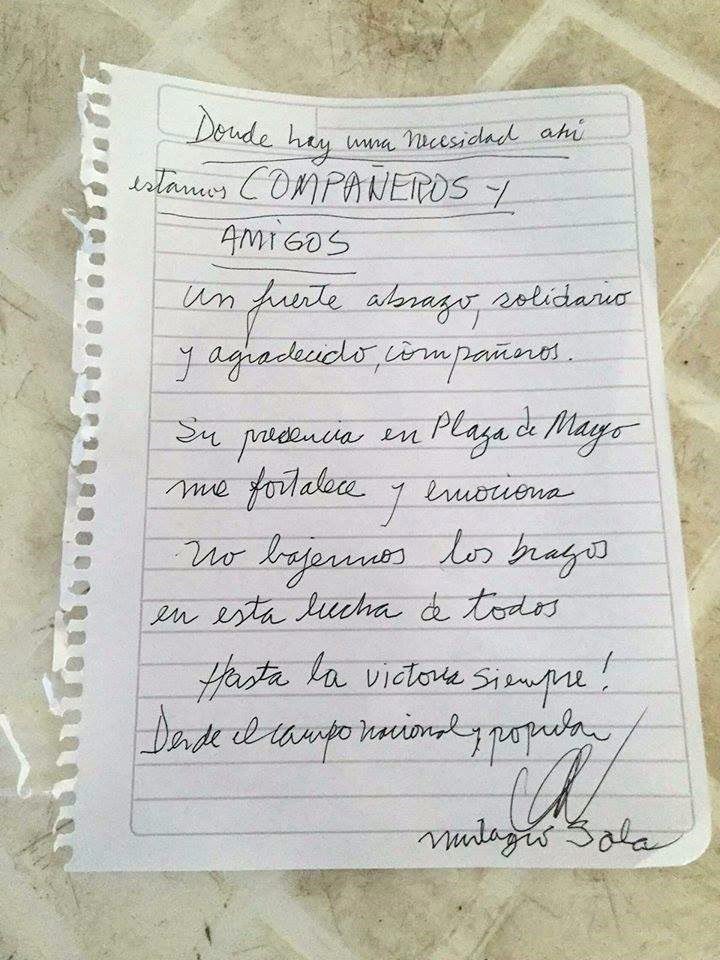 Donde hay una necesidad ahi
estamos COMPAÑEROS Y
AMIGOS
Un fuerte abrazo, solidario
y agradecido, compañeros.
Su presencia en Plaza de Mayo
me fortalece y emociona
No bajemos los brazos
en esta lucha de todos
Hasta la victoria siempre!
Desde el campo nacional y popular
Milagro Sala